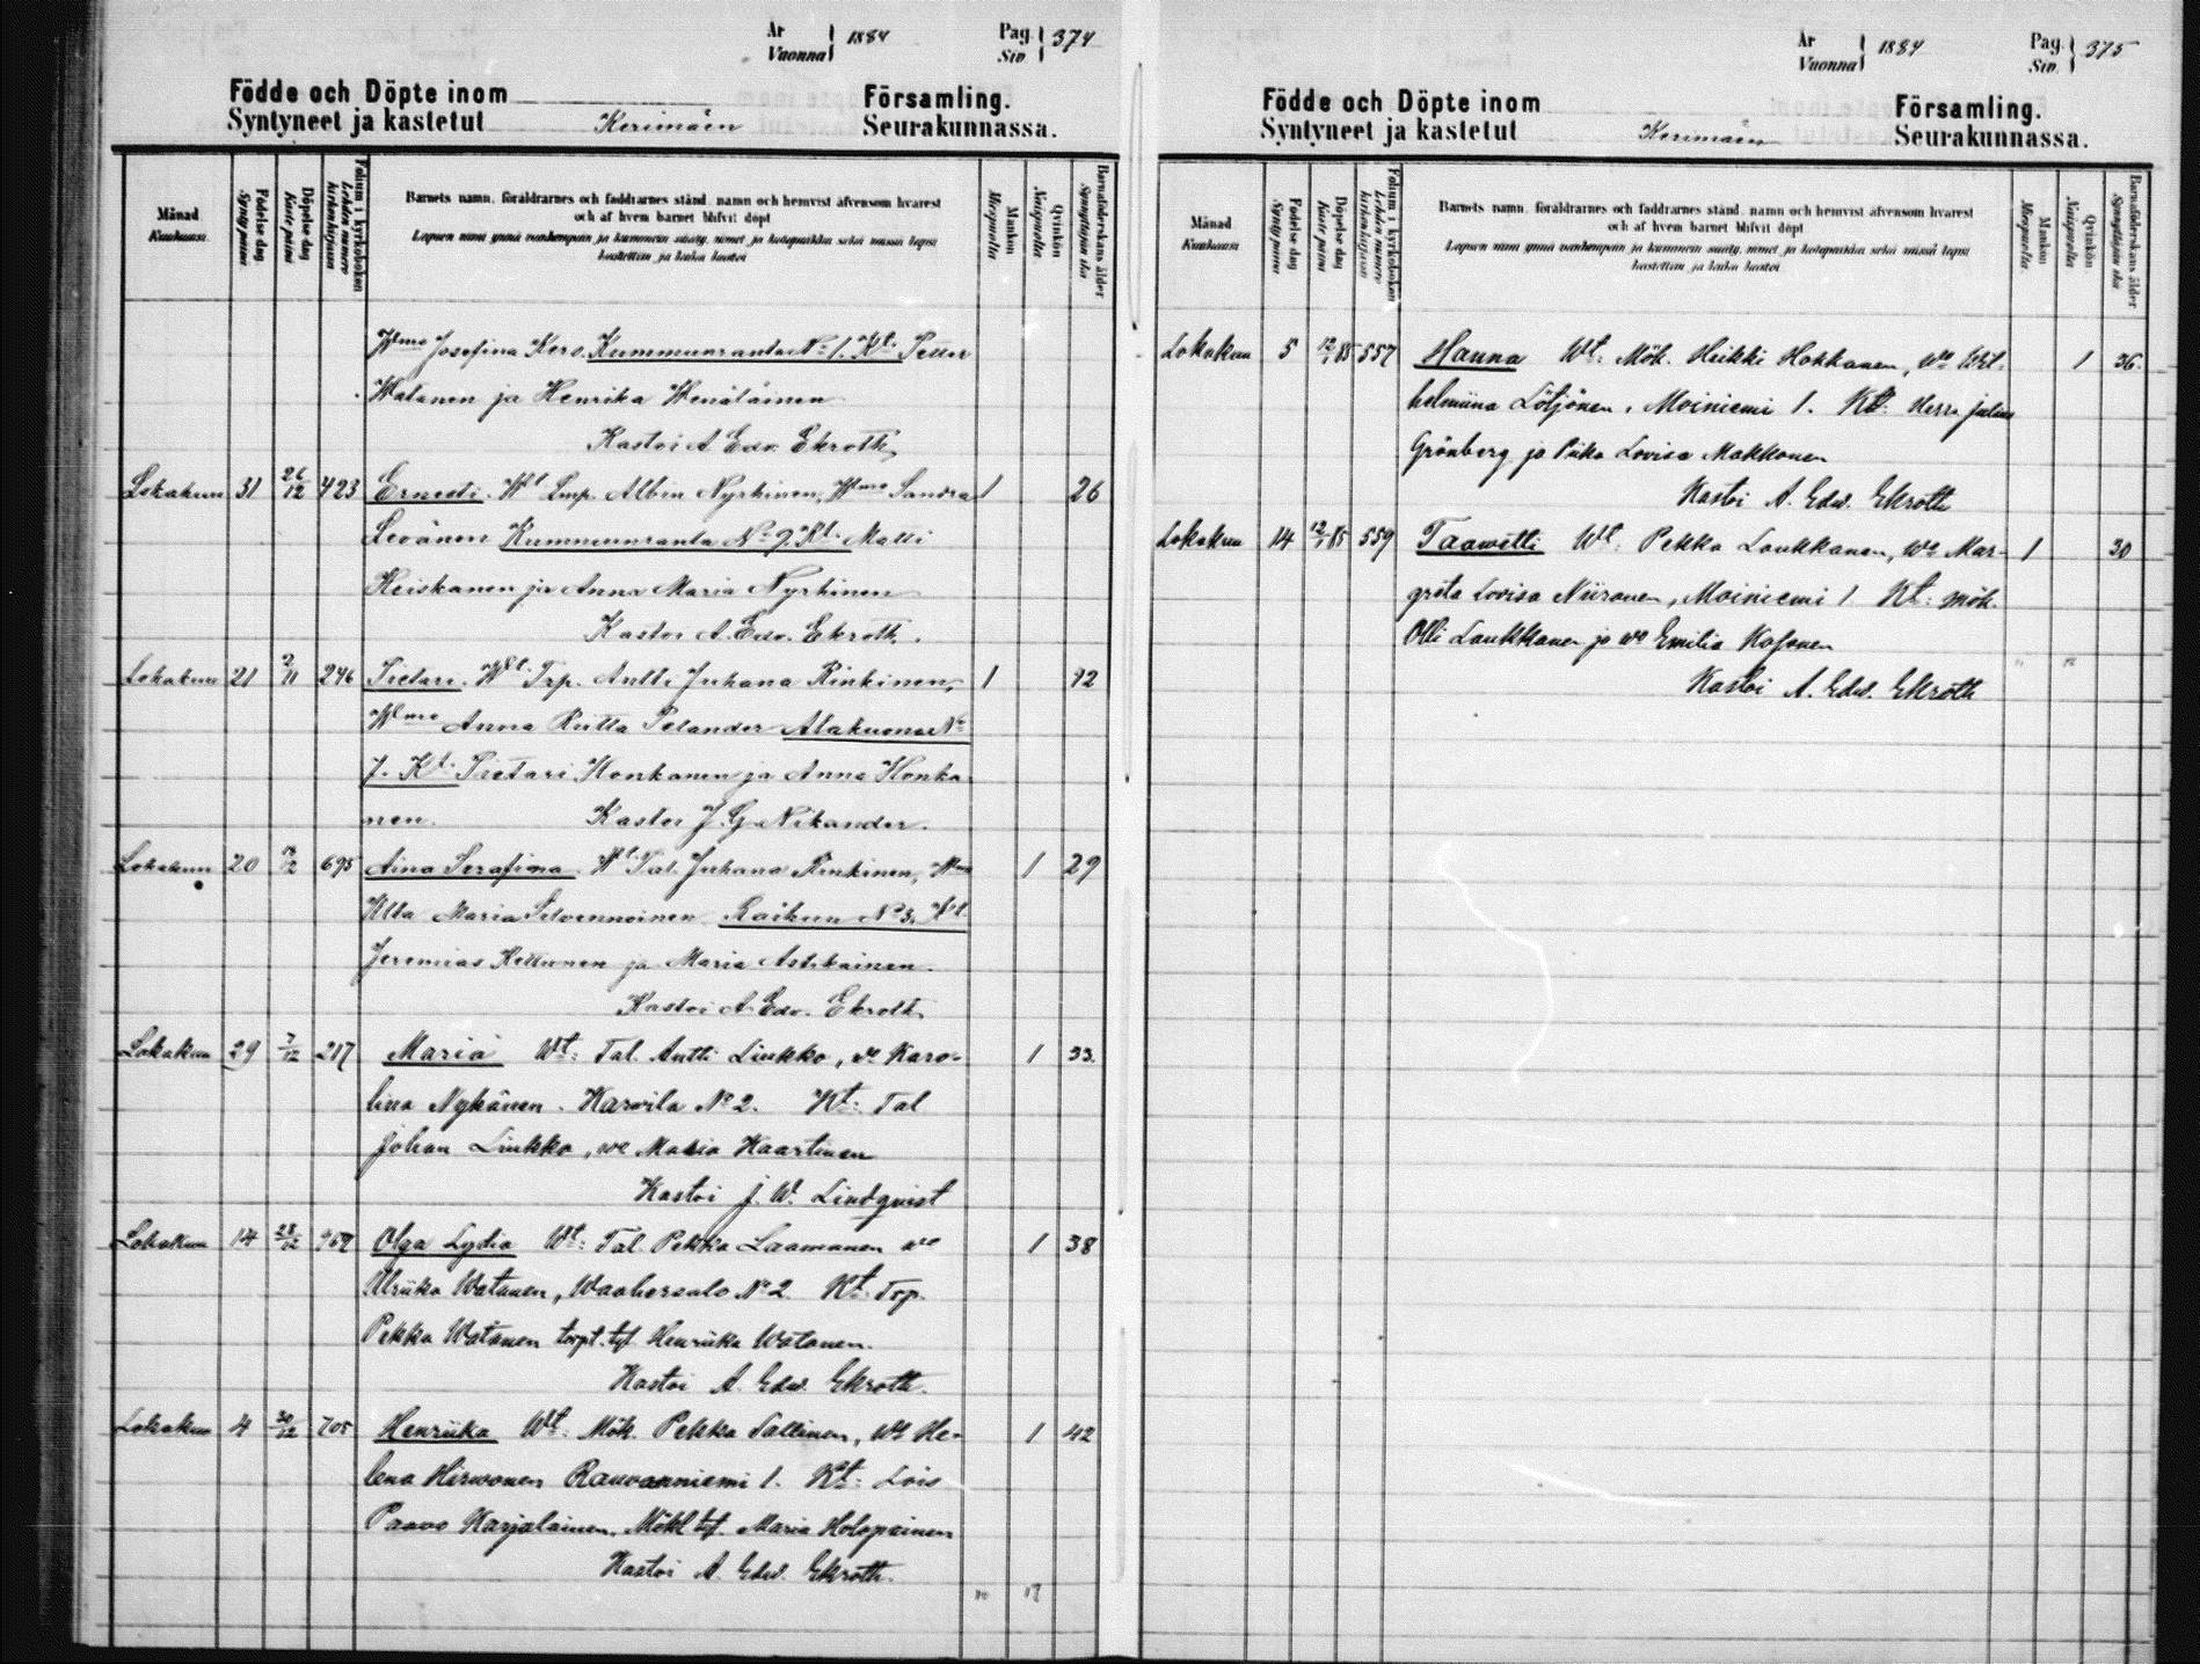 År Vuonna 1884 Pag. Siv. 374
Födde och Döpte inom Församling.
Syntyneet ja kastetut Kerimäen Seurakunnassa.
Månad Kuukausi
Födelse dag Synty päivä
Döpelse dag Kaste päivä
Folium i kyrkoboken Lehden numero kirkonkirjassa
Barnets namn, föräldrarnes och faddrarnes stånd, namn och hemvist äfvensom hvarest
och af hvem barnet blifvit döpt
Lapsen nimi ynnä vanhempain ja kummein sääty, nimet ja kotopaikka sekä missä lapsi
kastettiin ja kuka kastoi
Mankön Miespuolta
Qvinkön Naispuolta
Barnaföderskans ålder Synnyttäjän ikä
Josefina Kero. Kummunranta No 1. Kt. Petter
Watanen ja Henrika Wenäläinen
Kastoi A Edv. Ekroth
Lokakuu 31 26/12 423 Ernesti. Wt Lmp. Albin Nyrhinen, Wmo Sandra 1 26
Levänen Kummunranta No 9. Kt. Matti
Keiskanen ja Anna Maria Nyrhinen
Kastoi A. Edv. Ekroth.
Lokakuu 21 2/11 246 Pietari. Wt. Trp. Antti Juhana Rinkinen, 1 42
Wmo Anna Riitta Pelander Alakuona No
7. Kt. Pietari Honkanen ja Anna Honka
nen. Kastoi J. G. Nikander.
Lokakuu 20 695 Aina Serafina. Wt. Tal. Juhana Rinkinen, Wmo 1 29
Ulla Maria Silvennoinen Raikuu No 3. Kt.
Jeremias Kettunen ja Maria Astikainen.
Kastoi A. Edv. Ekroth
Lokakuu 29 7/12 217 Maria Wt: Tal. Antti Liukko, wo Karo- 1 33.
lina Nykänen. Karvila No 2. Kt: Tal
Johan Liukko, wo Maria Haartinen
Kastoi J. W. Lindqvist
Lokakuu 14 28/12 Olga Lydia Wt: Tal. Pekka Laamanen wo 1 38
Ulriika Watanen, Waahersalo No 2 Kt. Trp.
Pekka Watanen torpt. tyt Henriika Watanen.
Kastoi A. Edw. Ekroth.
Lokakuu 4 30/12 705 Henriika Wt: Mök. Pekka Sallinen, Wo He- 1 42
lena Hirvonen Rauvanniemi 1. Kt: Lois
Paavo Karjalainen, Mökl tyt. Maria Holopainen
Kastoi A. Edw. Ekroth.
År Vuonna 1884 Pag. Siv. 375
Födde och Döpte inom Församling.
Syntyneet ja kastetut Kerimäen Seurakunnassa.
Månad Kuukausi
Födelse dag Synty päivä
Döpelse dag Kaste päivä
Folium i kyrkoboken Lehden numero kirkonkirjassa
Barnets namn, föräldrarnes och faddrarnes stånd, namn och hemvist äfvensom hvarest
och af hvem barnet blifvit döpt
Lapsen nimi ynnä vanhempain ja kummein sääty, nimet ja kotopaikka sekä missä lapsi
kastettiin ja kuka kastoi
Mankön Miespuolta
Qvinkön Naispuolta
Barnaföderskans ålder Synnyttäjän ikä
Lokakuu 5 12/1 85 557 Hanna Wt: Mök. Heikki Hokkanen, Wo Wil- 1 36.
helmiina Löljönen, Moiniemi 1. Kt: Herra Julius
Grönberg ja Piika Lovisa Makkonen
Kastoi A. Edw. Ekroth
Lokakuu 14 12/1 85 559 Taavetti Wt: Pekka Laukkanen, Wo Mar- 1 30
greta Lovisa Niiranen, Moiniemi 1 Kt: mök.
Olli Laukkanen ja wo Emilia Kosonen
Kastoi A. Edw. Ekroth